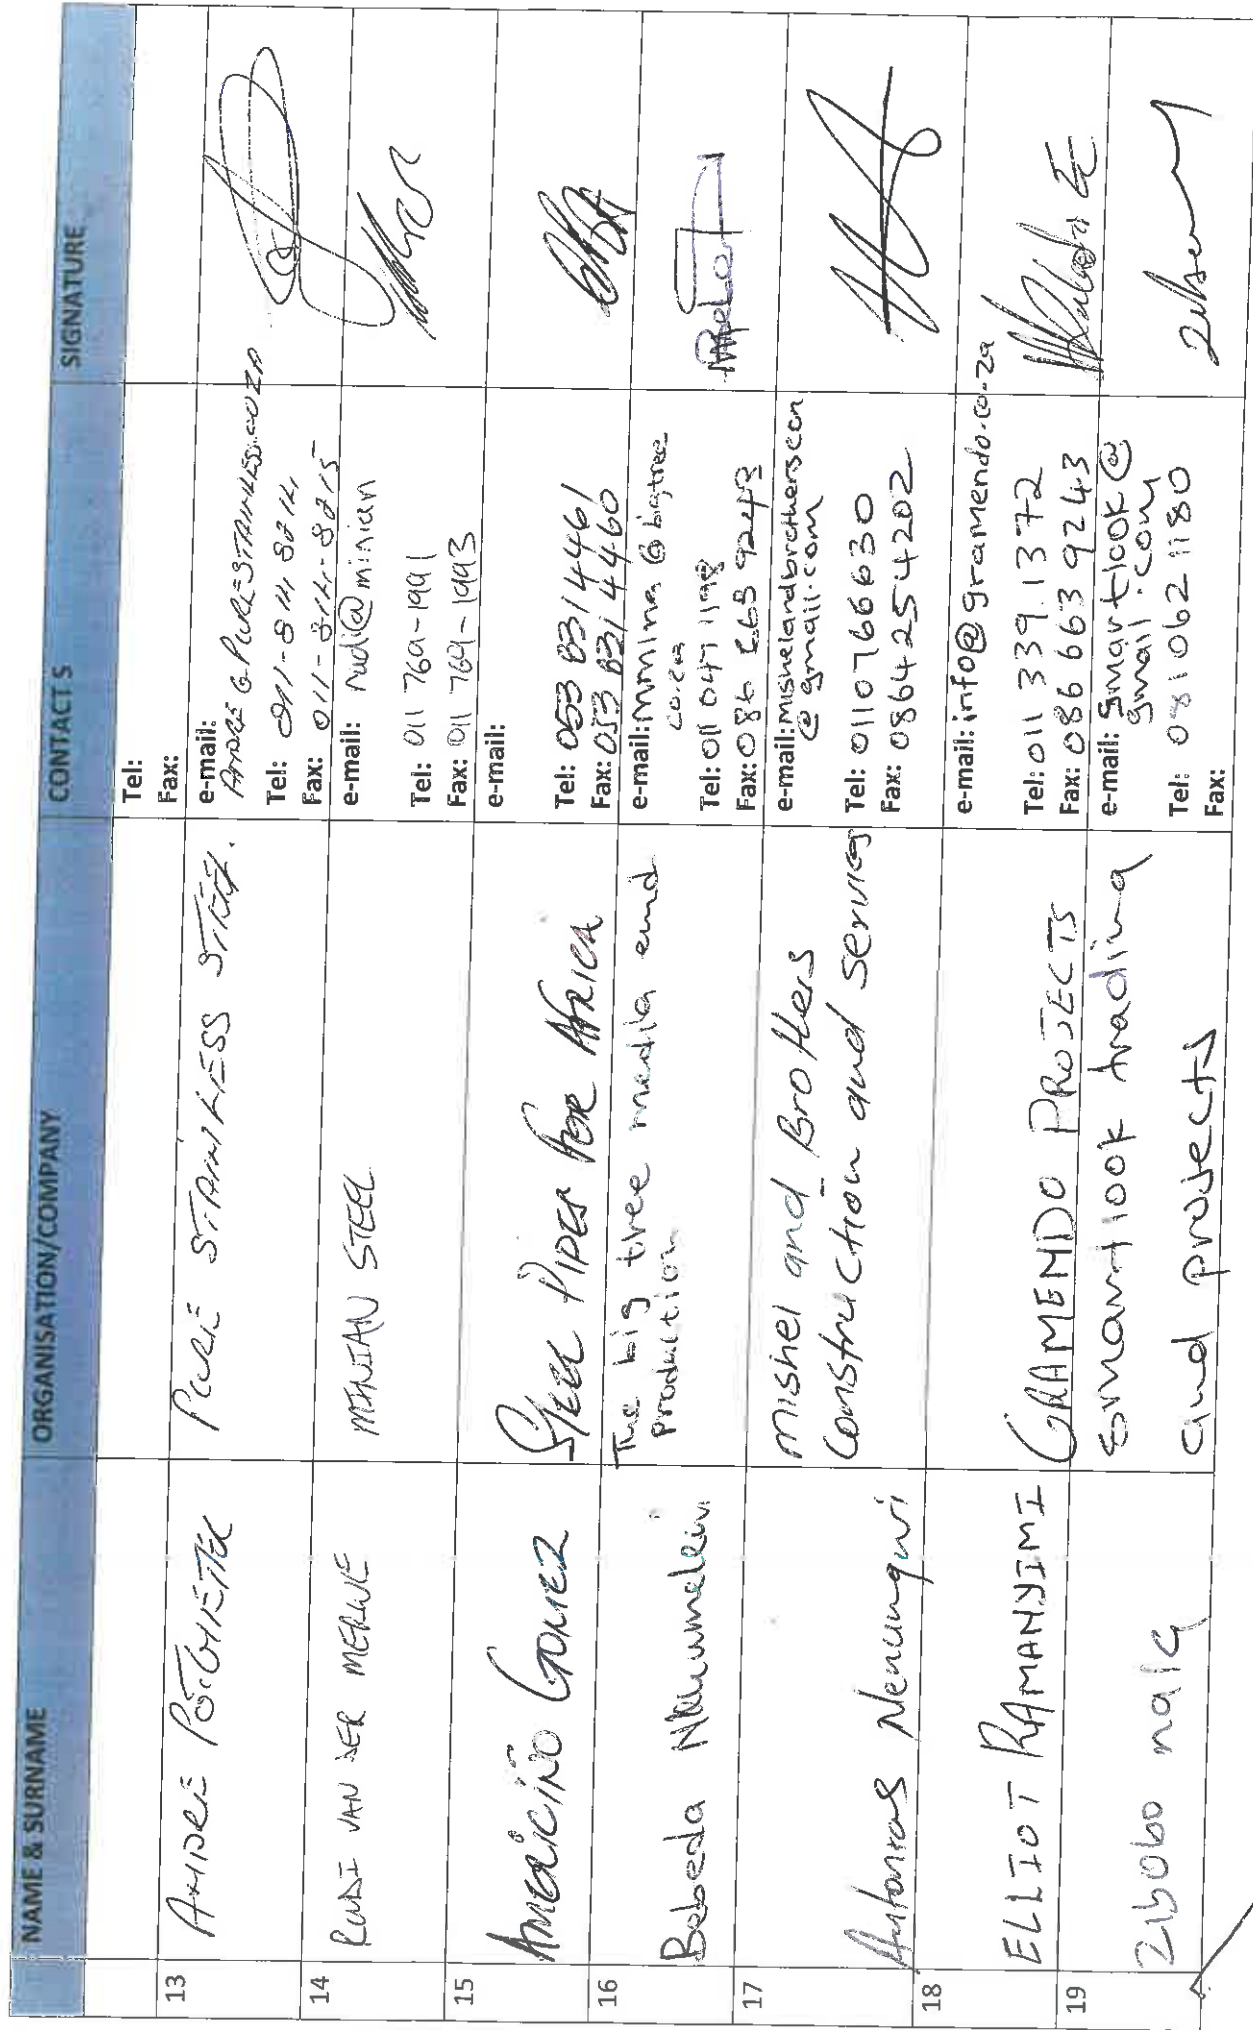 NAME & SURNAME
ORGANISATION/COMPANY
CONTACT S
SIGNATURE
Tel:
Fax:
13
ANDRE
PURE STAINLESS STEEL.
e-mail:
ANDRE @ PURESTAINLESS.CO.ZA
Tel: 011-814-8214
Fax: 011-814-8215
14
RUDI VAN DER MERWE
MINIAN STEEL
e-mail: rudi@minian
Tel: 011 769-1991
Fax: 011 769-1993
15
AMERICINO GOMEZ
STEEL PIPES FOR AFRICA
e-mail:
Tel: 053 831 4461
Fax: 053 831 4460
16
Bobeda
The big tree media and
production
e-mail: mmmlma @ bigtree
co.za
Tel: 011 047 1198
Fax: 086 668 9243
17
Antonas
mishel and Brothers
Construction and services
e-mail: mishelandbrotherscon
@ gmail.com
Tel: 0110766630
Fax: 0864254202
18
ELLIOT RAMANYIMI
GRAMENDO PROJECTS
e-mail: info@gramendo.co.za
Tel: 011 339 1372
Fax: 086 663 9243
19
Zibobo nala
Smartlook trading
and projects
e-mail: Smartlook @
gmail.com
Tel: 0810621180
Fax: